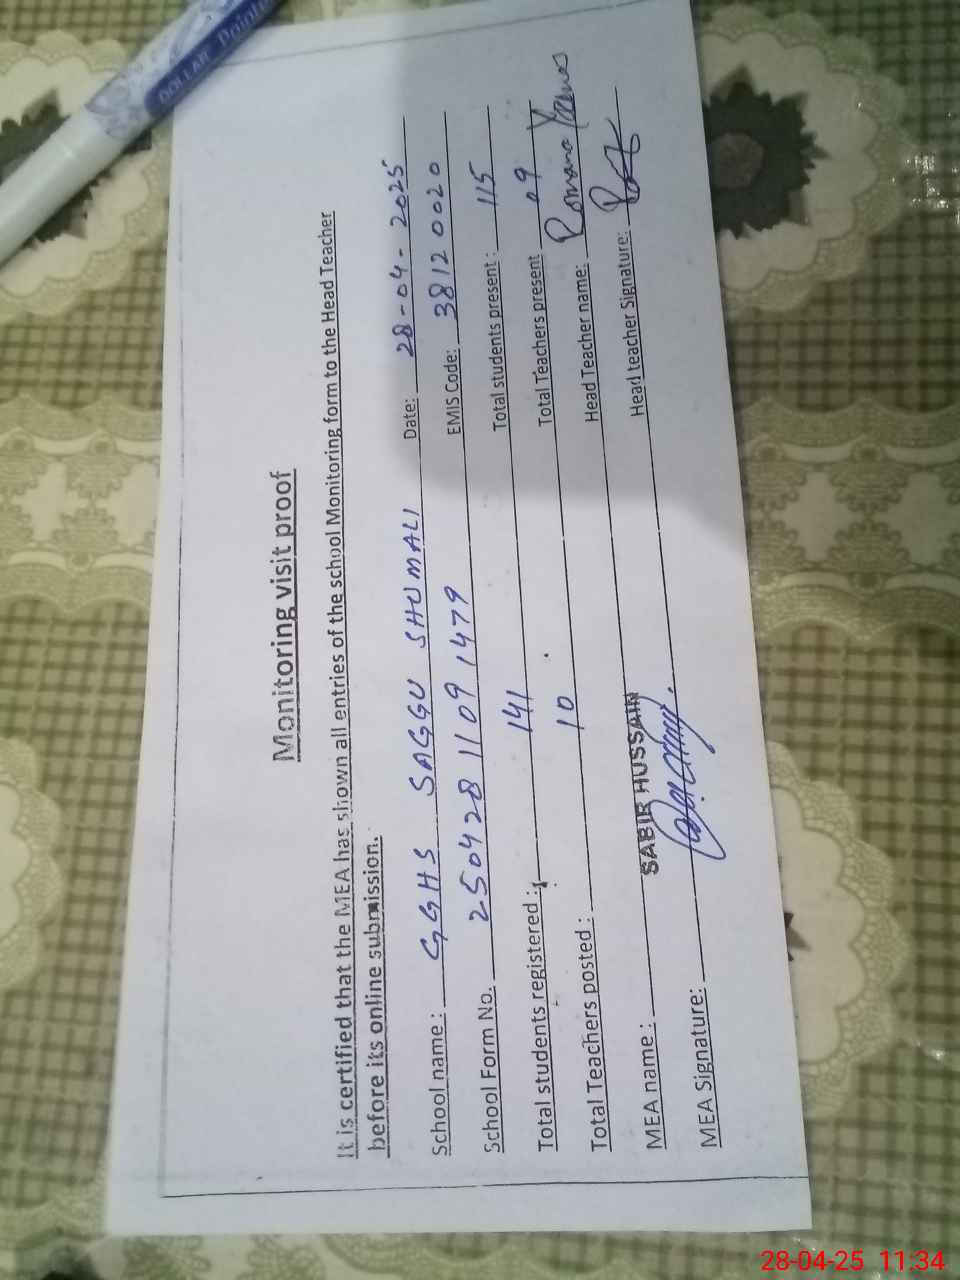 DOLLAR Pointer
Monitoring visit proof
It is certified that the MEA has shown all entries of the school Monitoring form to the Head Teacher
before its online submission.
School name : GGHS SAGGU SHUMALI Date: 28-04-2025
School Form No. 250428 1109 1479 EMIS Code: 3812 0020
Total students registered : 141 Total students present : 115
Total Teachers posted : 10 Total Teachers present 09
MEA name : SABIR HUSSAIN Head Teacher name: Romana
MEA Signature: Head teacher Signature:
28-04-25 11:34